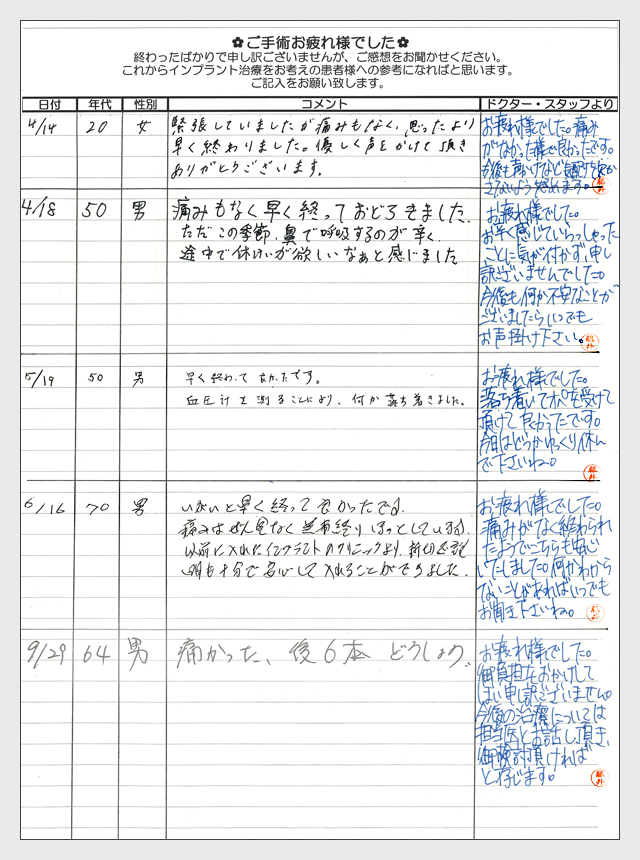 ✿ご手術お疲れ様でした✿
終わったばかりで申し訳ございませんが、ご感想をお聞かせください。
これからインプラント治療をお考えの患者様への参考になればと思います。
ご記入をお願い致します。
日付 年代 性別 コメント ドクター・スタッフより
4/14 20 女 緊張していましたが痛みもなく、思ったより
早く終わりました。優しく声をかけて頂き
ありがとうございます。
お疲れ様でした。痛み
がなかった様で良かったです。
今後も声かけなど
さないよう努めます。
4/18 50 男 痛みもなく早く終っておどろきました。
ただこの季節、鼻で呼吸するのが辛く、
途中で休けいが欲しいなぁと感じました
お疲れ様でした。
お辛く感じていらっしゃった
ことに気が付かず、申し
訳ございませんでした。
今後も何か不安なことが
ございましたらいつでも
お声掛け下さい。
5/19 50 男 早く終わってよかったです。
血圧計を測ることにより、何か落ち着きました。
お疲れ様でした。
落ち着いてオペを受けて
頂けて良かったです。
今日はどうかゆっくり休ん
で下さいね。
6/16 70 男 いがいと早く終って良かったです。
痛みはぜんぜんなく無事終りほっとしています。
以前に入れたインプラントのクリニックより、親切
説明も十分で安心して入れることができました。
お疲れ様でした。
痛みがなく終わられ
たようでこちらも安心
いたしました。何かわから
ないことがあればいつでも
お聞き下さいね。
9/29 64 男 痛かった、後6本どうしよう。
お疲れ様でした。
御負担をおかけして
しまい申し訳ございません。
今後の治療については
担当医とお話し頂き、
御検討頂ければ
と存じます。